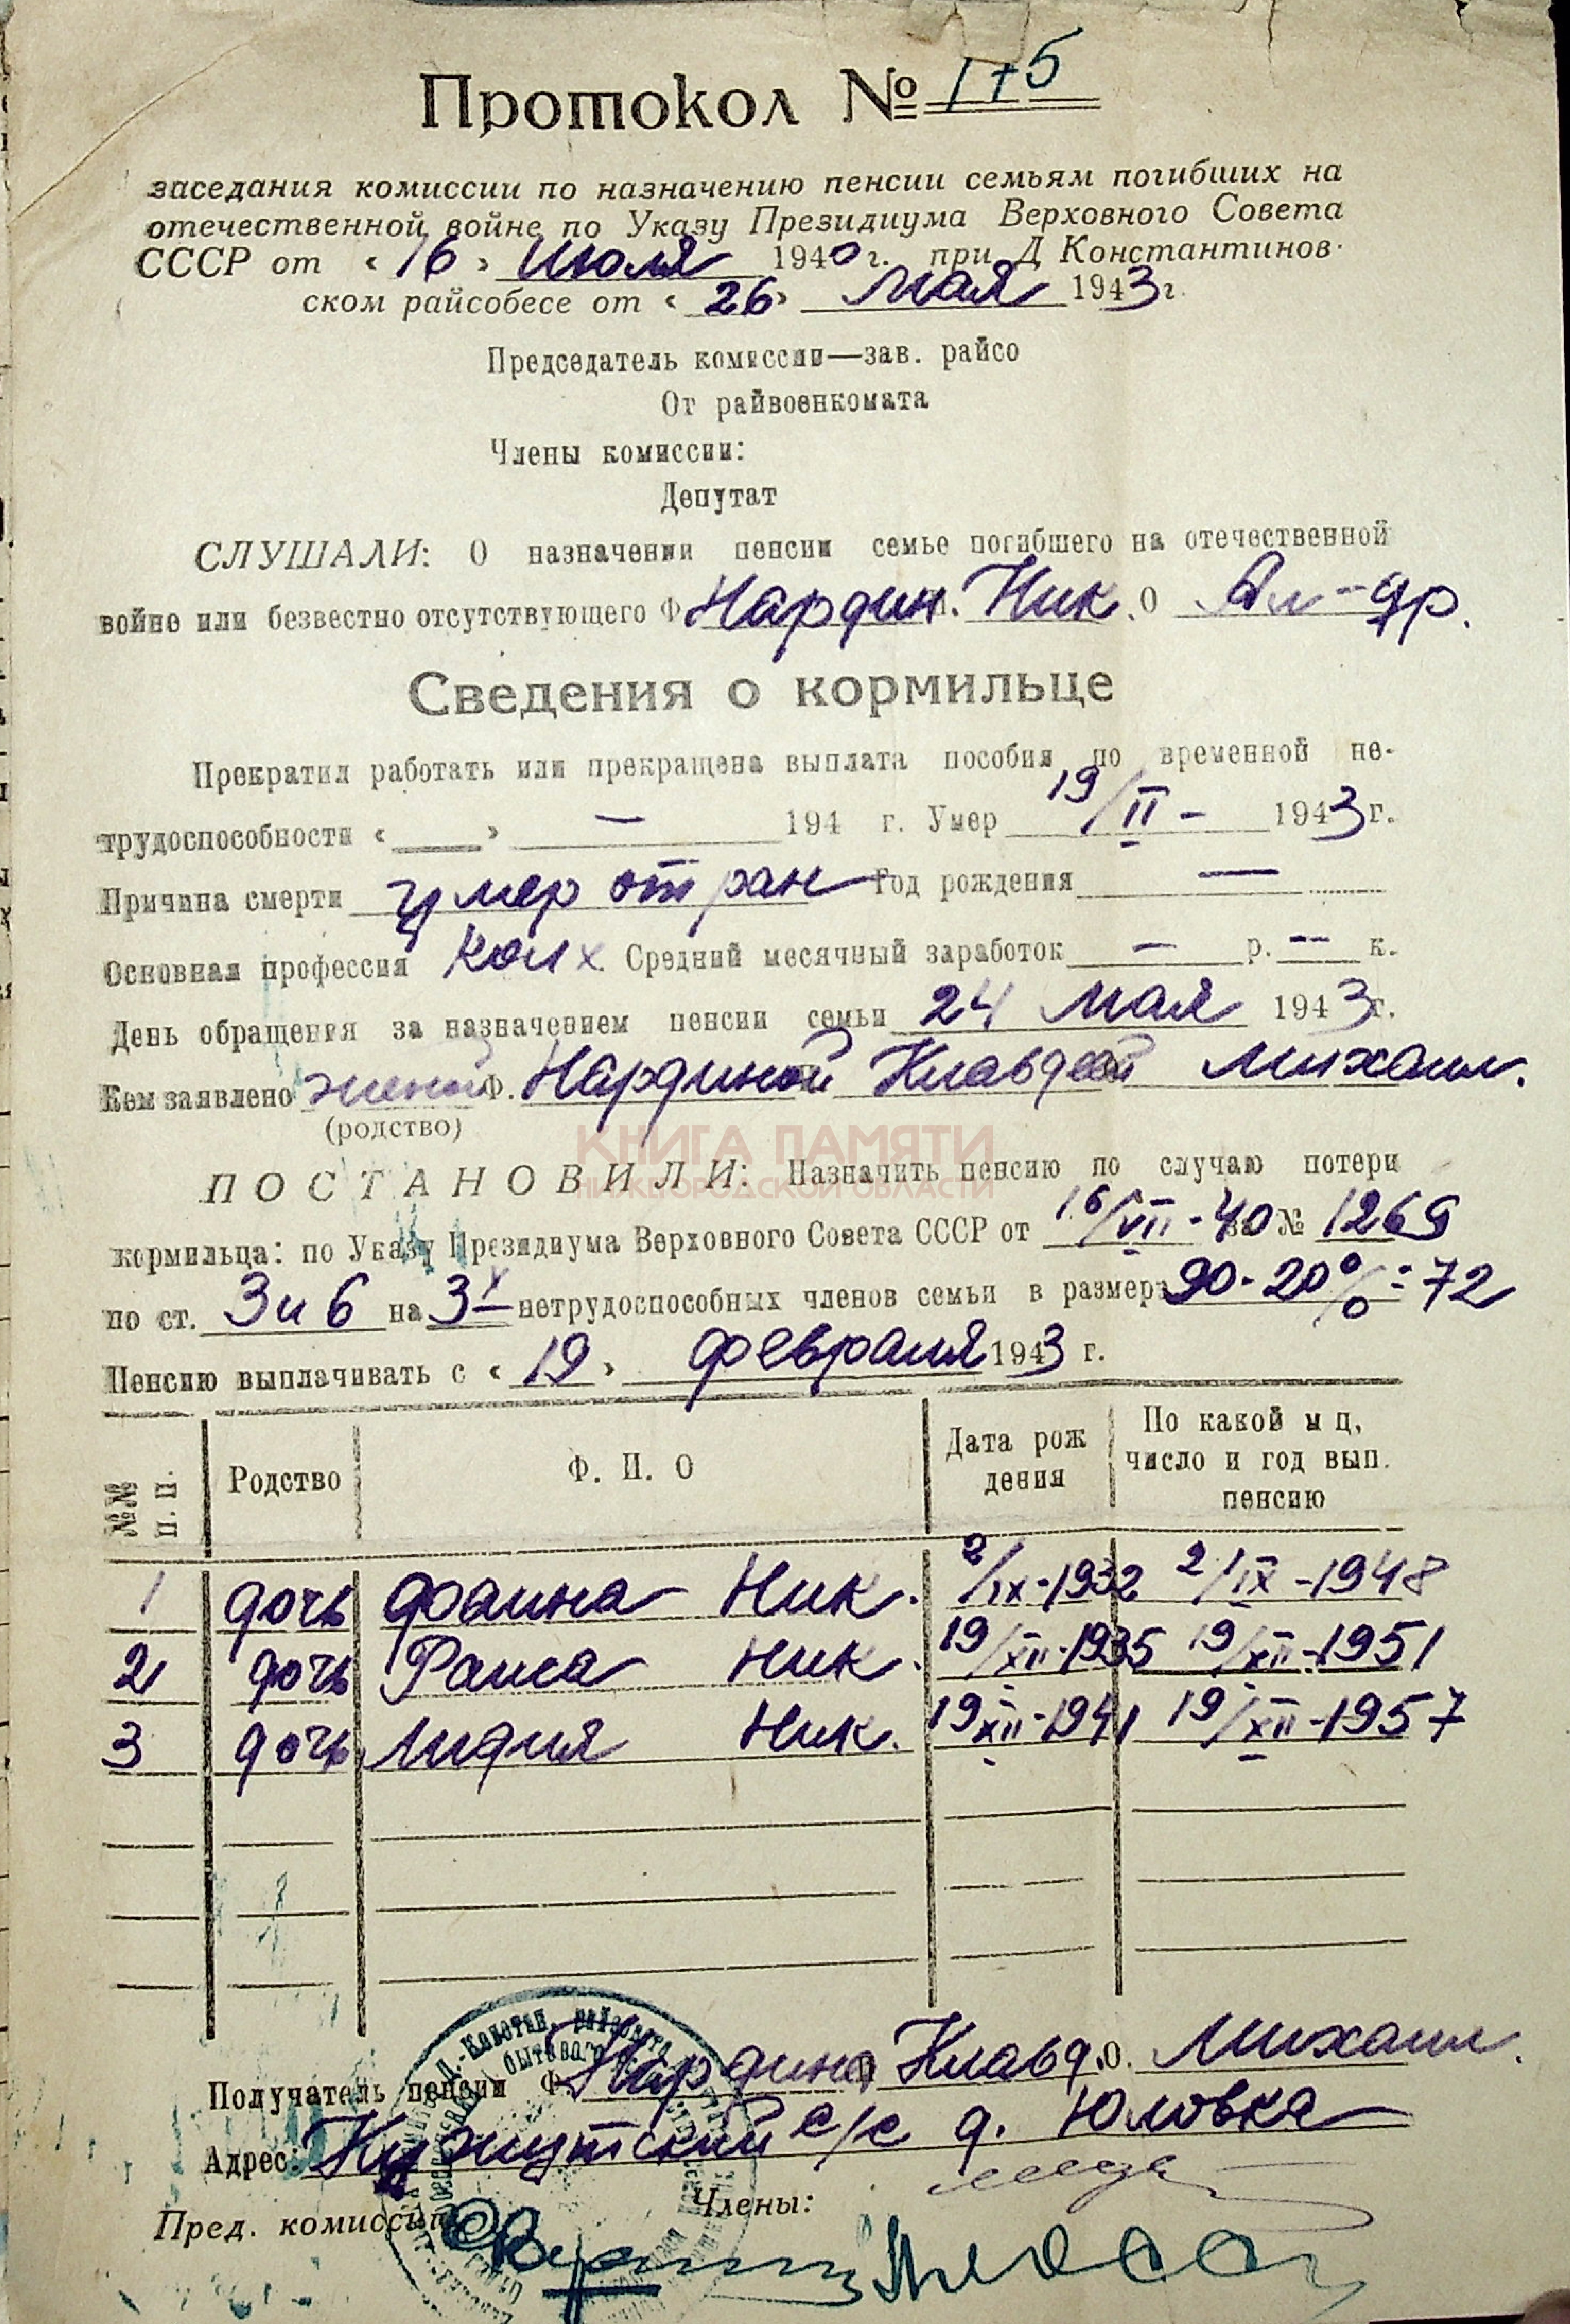 Протокол № 175
заседания комиссии по назначению пенсии семьям погибших на
отечественной войне по Указу Президиума Верховного Совета
СССР от «16» Июля 1940 г. при Д Константинов-
ском райсобесе от «26» Мая 1943 г.
Председатель комиссии—зав. райсо
От райвоенкомата
Члены комиссии:
Депутат
СЛУШАЛИ: О назначении пенсии семье погибшего на отечественной
войне или безвестно отсутствующего Ф Нардин. Ник. О Ал-др.
Сведения о кормильце
Прекратил работать или прекращена выплата пособия по временной не-
трудоспособности «___» — 194 г. Умер 19/II - 1943 г.
Причина смерти умер от ран Год рождения —
Основная профессия колх. Средний месячный заработок — р. — к.
День обращения за назначением пенсии семьи 24 Мая 1943 г.
Кем заявлено женой Ф. Нардиной Клавдей Михаил.
(родство)
КНИГА ПАМЯТИ
НИЖЕГОРОДСКОЙ ОБЛАСТИ
ПОСТАНОВИЛИ: Назначить пенсию по случаю потери
кормильца: по Указу Президиума Верховного Совета СССР от 16/VII-40 за № 1269
по ст. 3 и 6 на 3х нетрудоспособных членов семьи в размере 90-20%=72
Пенсию выплачивать с «19» февраля 1943 г.
№№ п. п. Родство Ф. И. О Дата рож дения По какой м ц, число и год вып. пенсию
1 дочь Фаина Ник. 2/IX-1932 2/IX-1948
2 дочь Раиса Ник. 19/XII-1935 19/XII-1951
3 дочь Лидия Ник. 19 XII-1941 19/XII-1957
Получатель пенсии Ф. Нардина Клавд. О. Михаил.
Адрес: Кужутский с/с д. Юловка
Пред. комиссии Члены: